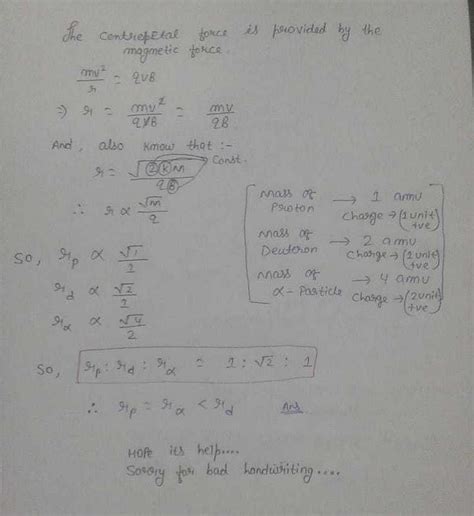 The centropetal force is provided by the
magnetic force.
mv²/r = qvB
⇒ r = mv²/qvB = mv/qB
And, also know that :-
r = √2km/qB Const.
∴ r ∝ √m/q
So, r_p ∝ √1/2
r_d ∝ √2/2
r_α ∝ √4/2
Mass of Proton → 1 amu
Charge → (1unit +ve)
Mass of Deutron → 2 amu
Charge → (1unit +ve)
Mass of α-Particle → 4 amu
Charge → (2unit +ve)
So, r_p : r_d : r_α = 1 : √2 : 1
∴ r_p = r_α < r_d Ans.
HOPE its help....
Sorory for bad handwriting....